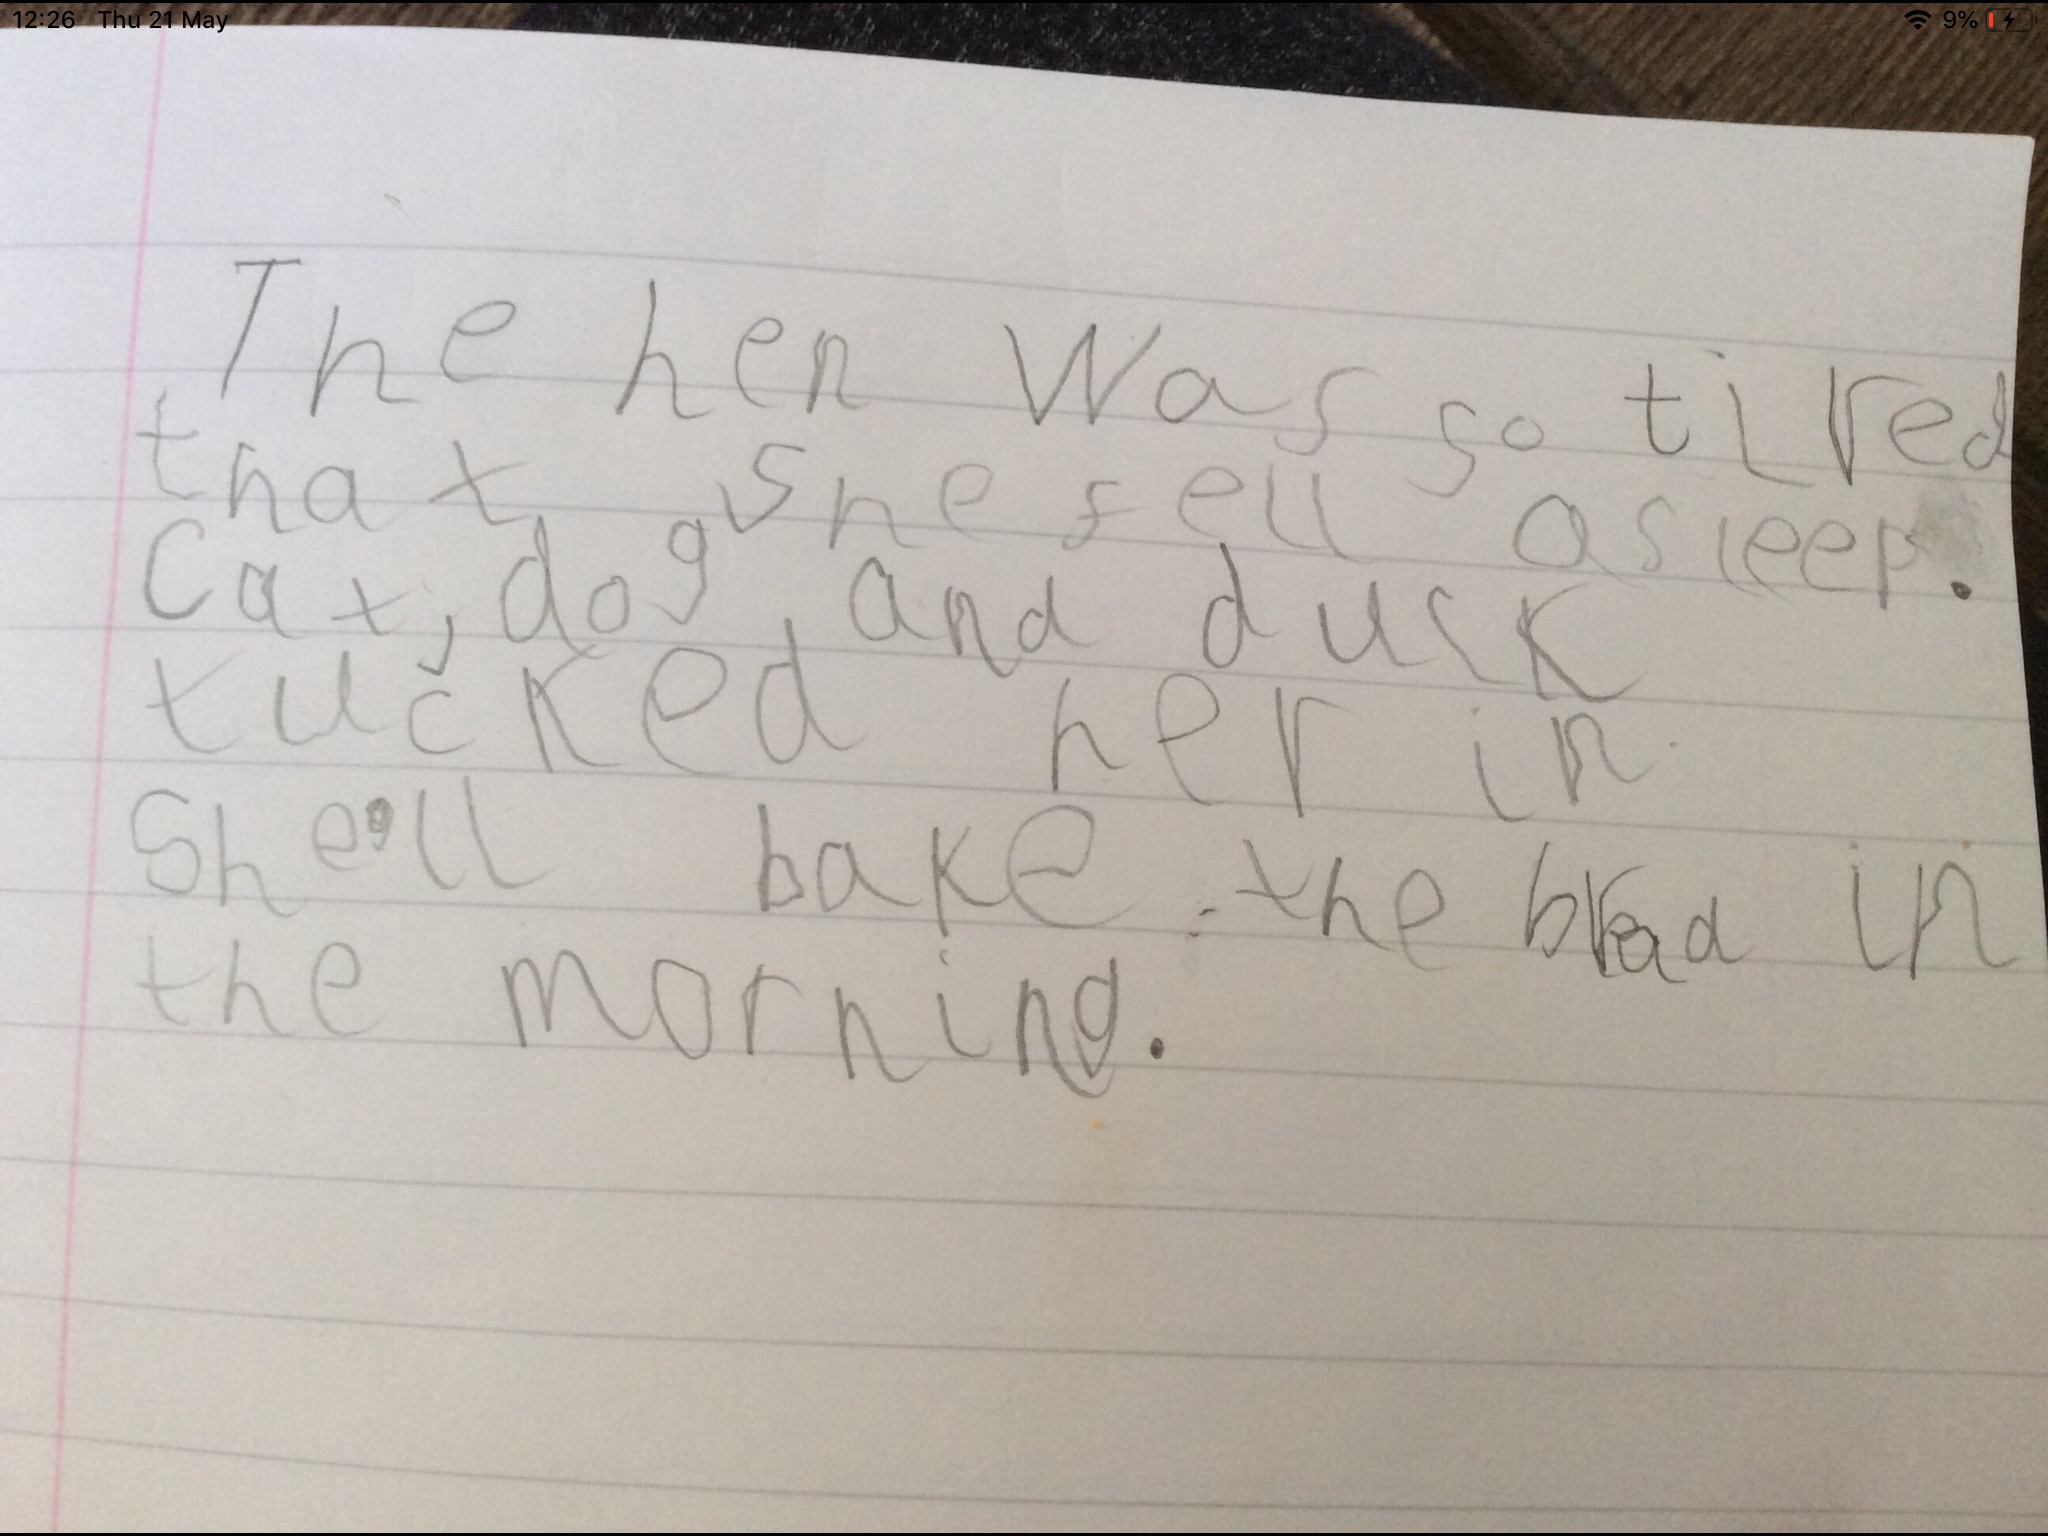 12:26 Thu 21 May 9%
The hen Was so tired
that she fell asleep.
Cat, dog and duck
tucked her in
She'll bake the bread in
the morning.